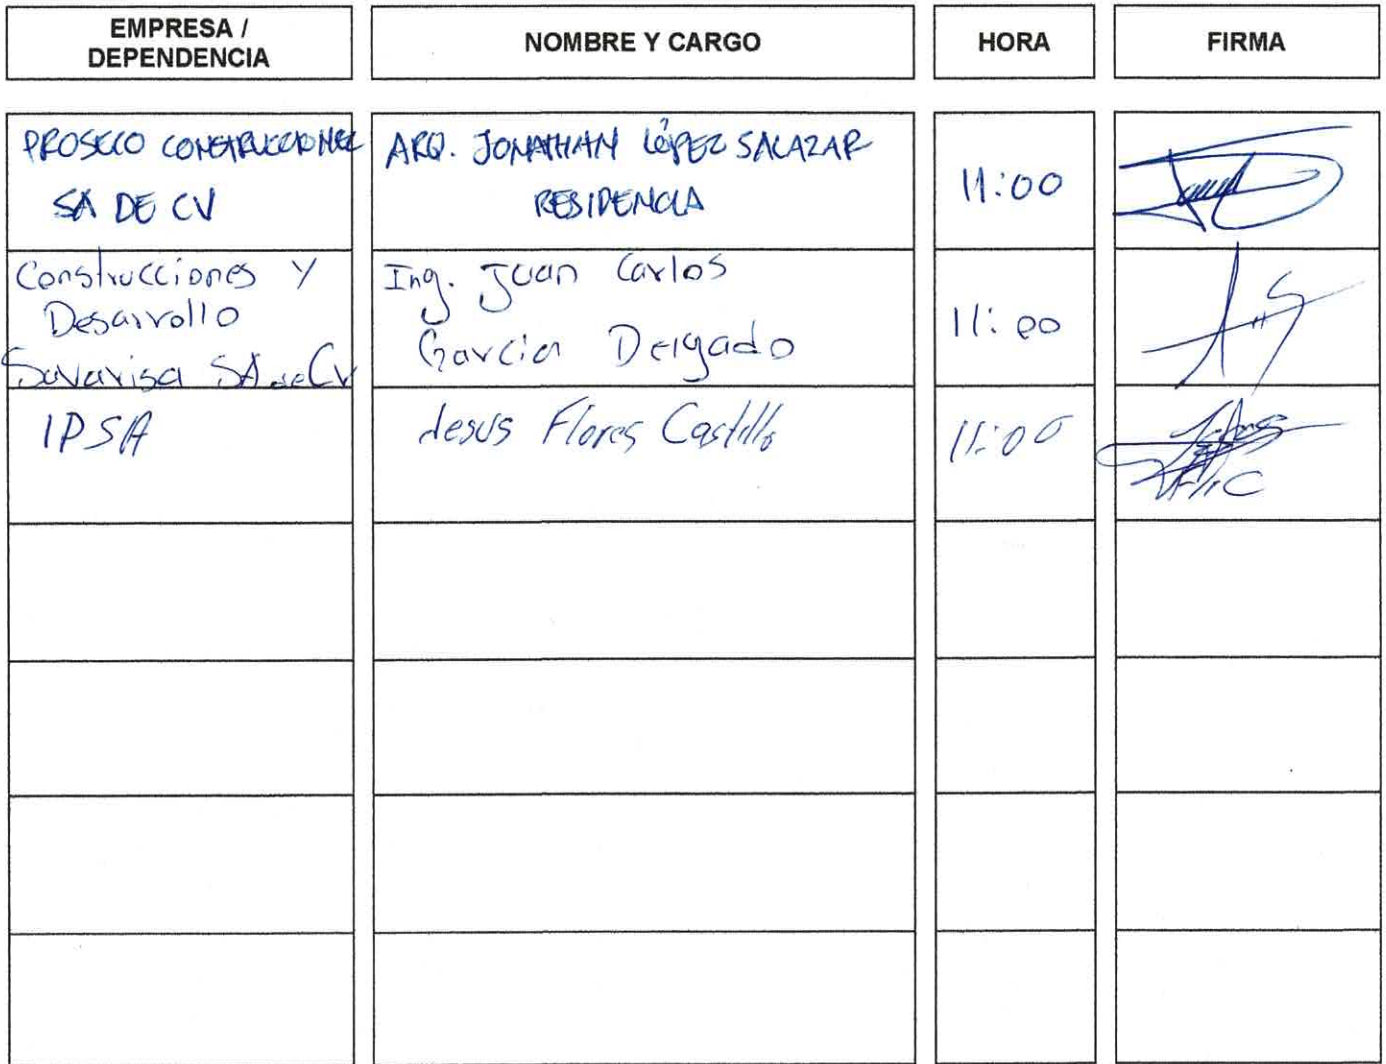 EMPRESA /
DEPENDENCIA
NOMBRE Y CARGO
HORA
FIRMA
PROSECO CONSTRUCCIONES
SA DE CV
ARQ. JONATHAN LÓPEZ SALAZAR
RESIDENCIA
11:00
Construcciones y
Desarrollo
Savarisa SA de CV
Ing. Juan Carlos
Garcia Delgado
11:00
IPSA
Jesus Flores Castillo
11:00